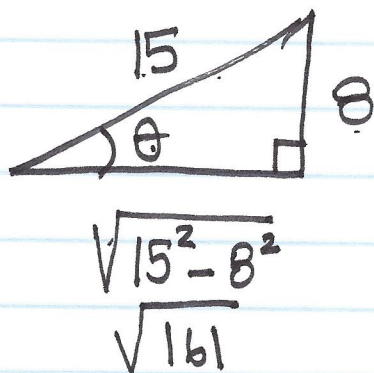 15
8
θ
√15²-8²
√161